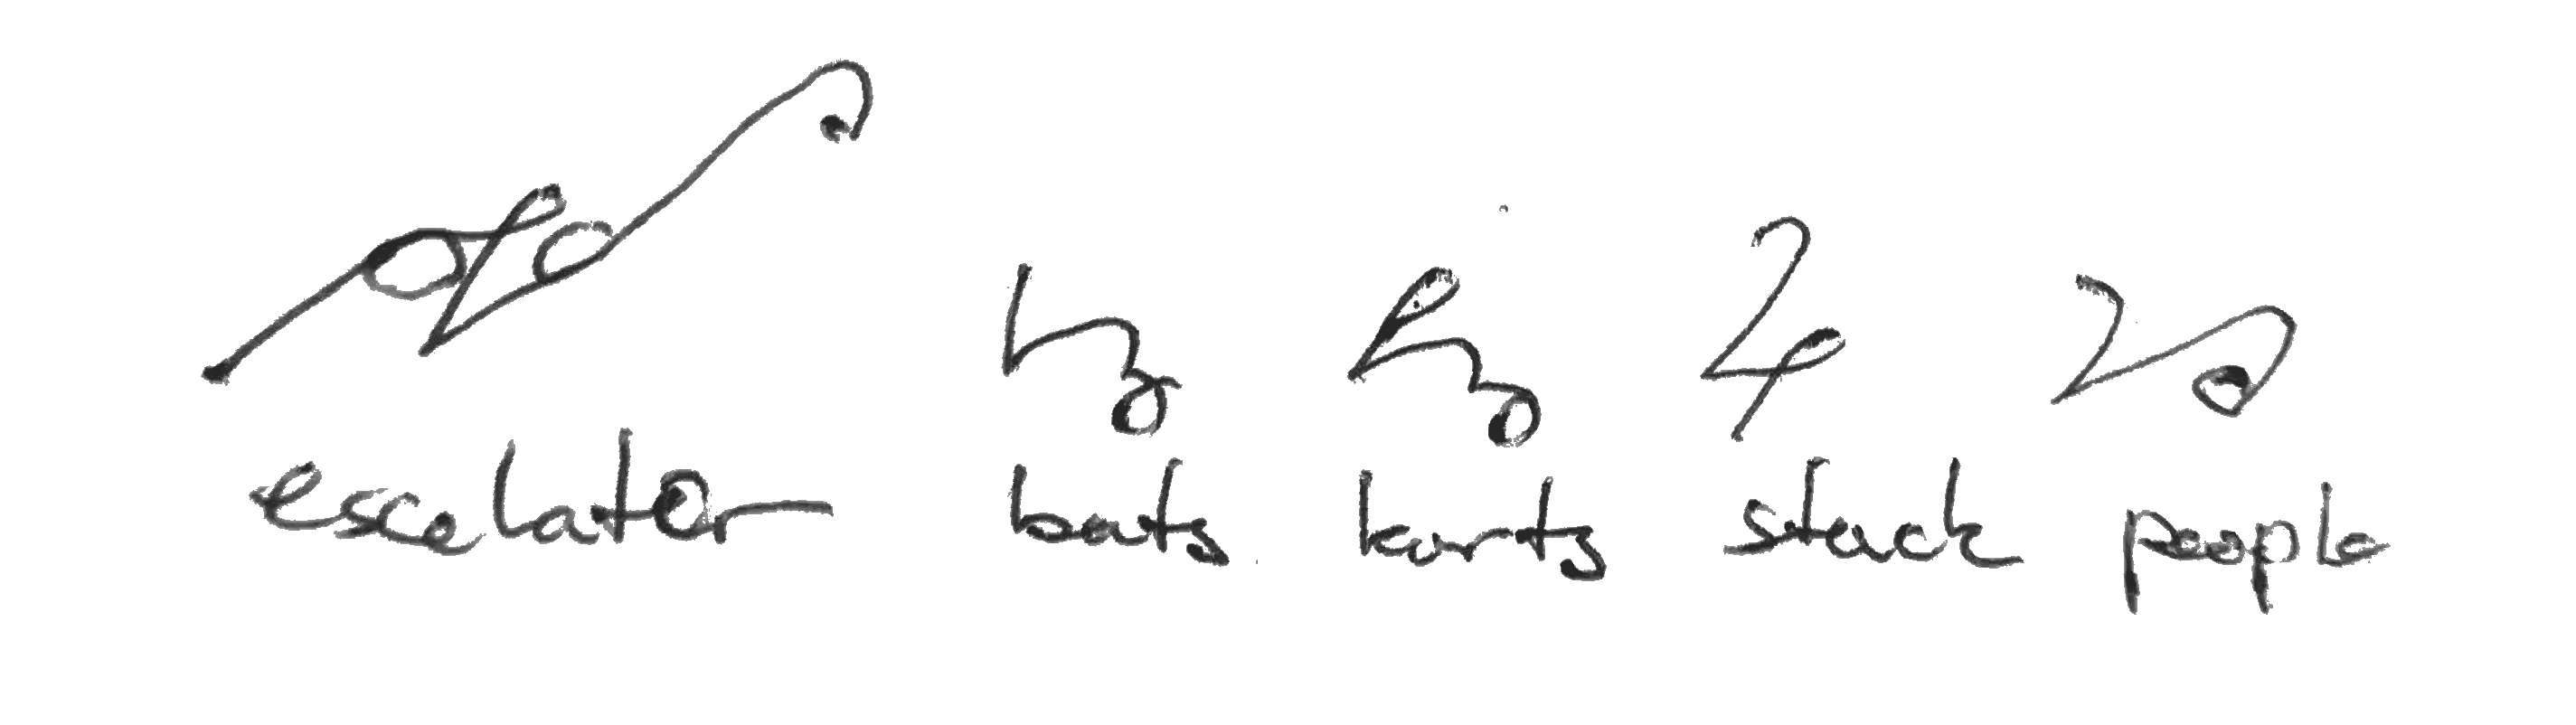 escalator bats karts stack people